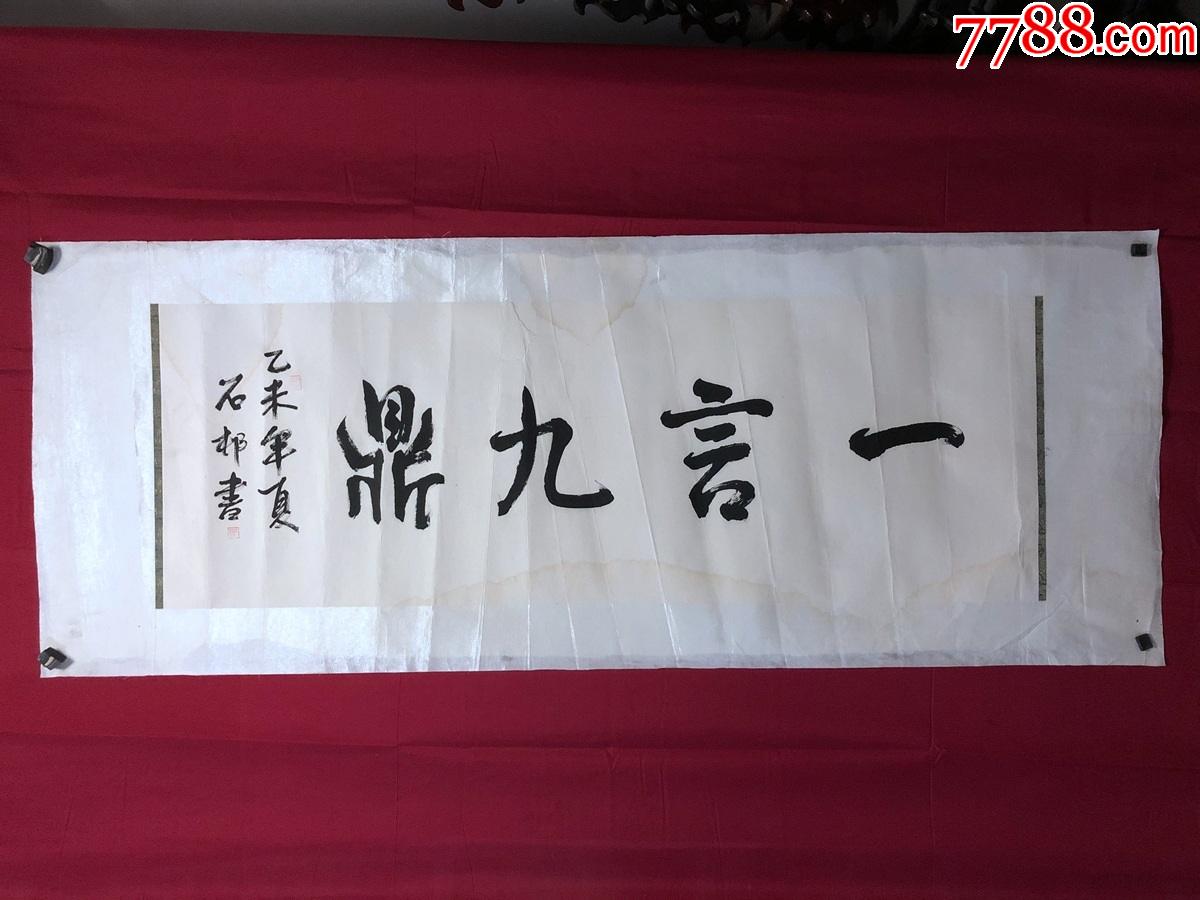 一言九鼎
乙未年夏
石邨書
7788.com